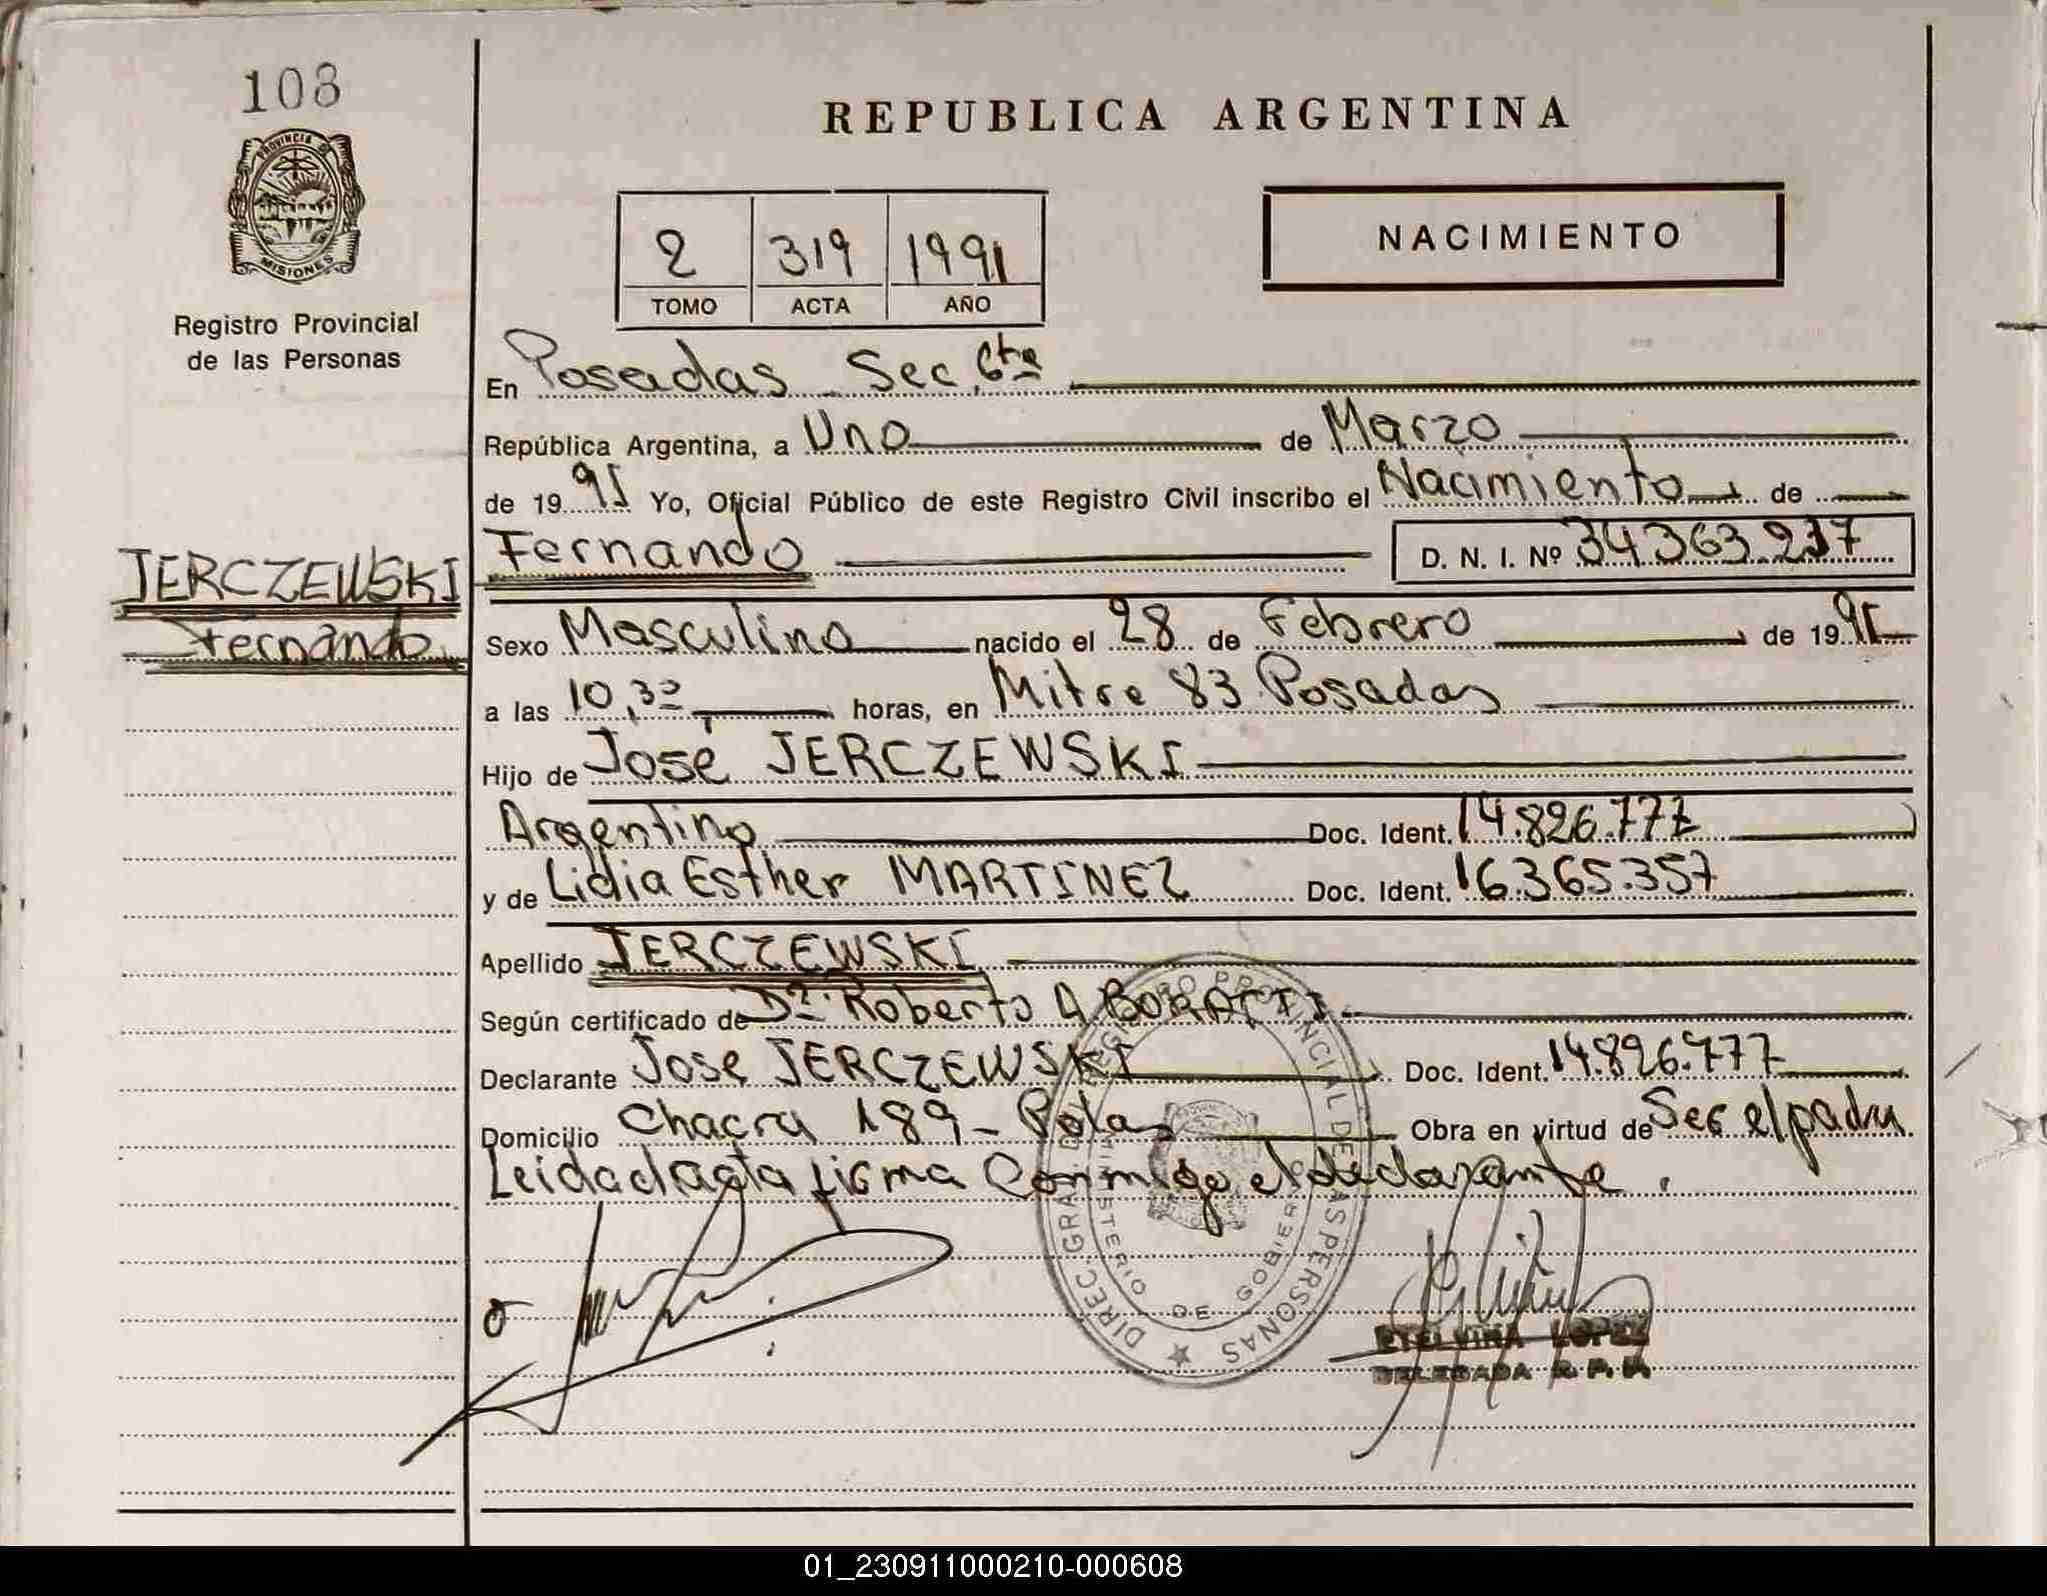 108
PROVINCIA D
MISIONES
Registro Provincial
de las Personas
REPUBLICA ARGENTINA
2 319 1991
TOMO ACTA AÑO
NACIMIENTO
En Posadas Sec. 6ta
República Argentina, a Uno de Marzo
de 1991 Yo, Oficial Público de este Registro Civil inscribo el Nacimiento de
JERCZEWSKI
Fernando
Fernando D. N. I. Nº 34.363.217
Sexo Masculino nacido el 28 de Febrero de 1991
a las 10,30 horas, en Mitre 83 Posadas
Hijo de José JERCZEWSKI
Argentino Doc. Ident. 14.826.777
y de Lidia Esther MARTINEZ Doc. Ident. 16.365.357
Apellido JERCZEWSKI
Según certificado de Dr. Roberto A
Declarante Jose JERCZEWSKI Doc. Ident. 14.826.777
Domicilio Chacra 189 - Pdas Obra en virtud de Ser el padre
Leida el acta firma Conmigo el declarante.
DIREC. GRAL. DEL REGISTRO PROVINCIAL DE LAS PERSONAS
MINISTERIO DE GOBIERNO
ETELVINA LOPEZ
DELEGADA R. P. P.
01_230911000210-000608